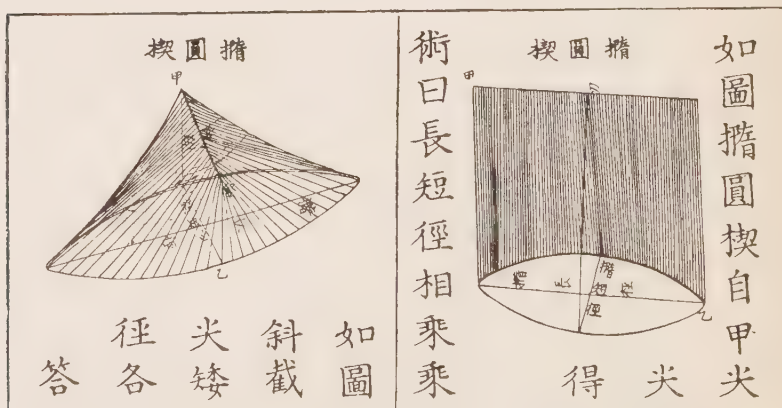 如圖撱圓楔自甲尖
撱圓楔
甲
長
短徑
乙
尖
得
術曰長短徑相乘乘
撱圓楔
甲
乙
如圖
斜截
尖矮
徑各
答